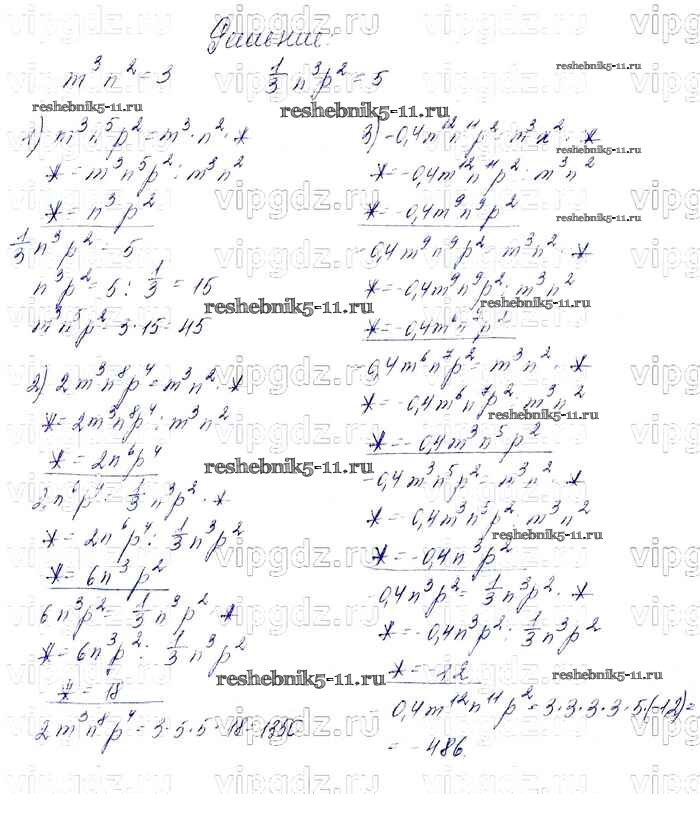 Решение.
m³n² = 3   1/3 n³p² = 5
1) m³n⁵p² = m³·n²·*
* = m³n⁵p² : m³n²
* = n³p²
1/3 n³p² = 5
n³p² = 5 : 1/3 = 15
m³n⁵p² = 3·15 = 45
2) 2m³n⁸p⁴ = m³n²·*
* = 2m³n⁸p⁴ : m³n²
* = 2n⁶p⁴
2n⁶p⁴ = 1/3 n³p²·*
* = 2n⁶p⁴ : 1/3 n³p²
* = 6n³p²
6n³p² = 1/3 n³p² *
* = 6n³p² : 1/3 n³p²
* = 18
2m³n⁸p⁴ = 3·5·5·18 = 1350
3) -0,4m¹²n¹¹p² = m³n²·*
* = -0,4m¹²n¹¹p² : m³n²
* = -0,4m⁹n⁹p²
-0,4m⁹n⁹p² = m³n²·*
* = -0,4m⁹n⁹p² : m³n²
* = -0,4m⁶n⁷p²
-0,4m⁶n⁷p² = m³n²·*
* = -0,4m⁶n⁷p² : m³n²
* = -0,4m³n⁵p²
-0,4m³n⁵p² = m³n²·*
* = -0,4m³n⁵p² : m³n²
* = -0,4n³p²
-0,4n³p² = 1/3 n³p²·*
* = -0,4n³p² : 1/3 n³p²
* = -1,2
0,4m¹²n¹¹p² = 3·3·3·3·5·(-1,2) =
= -486.
vipgdz.ru
reshebnik5-11.ru